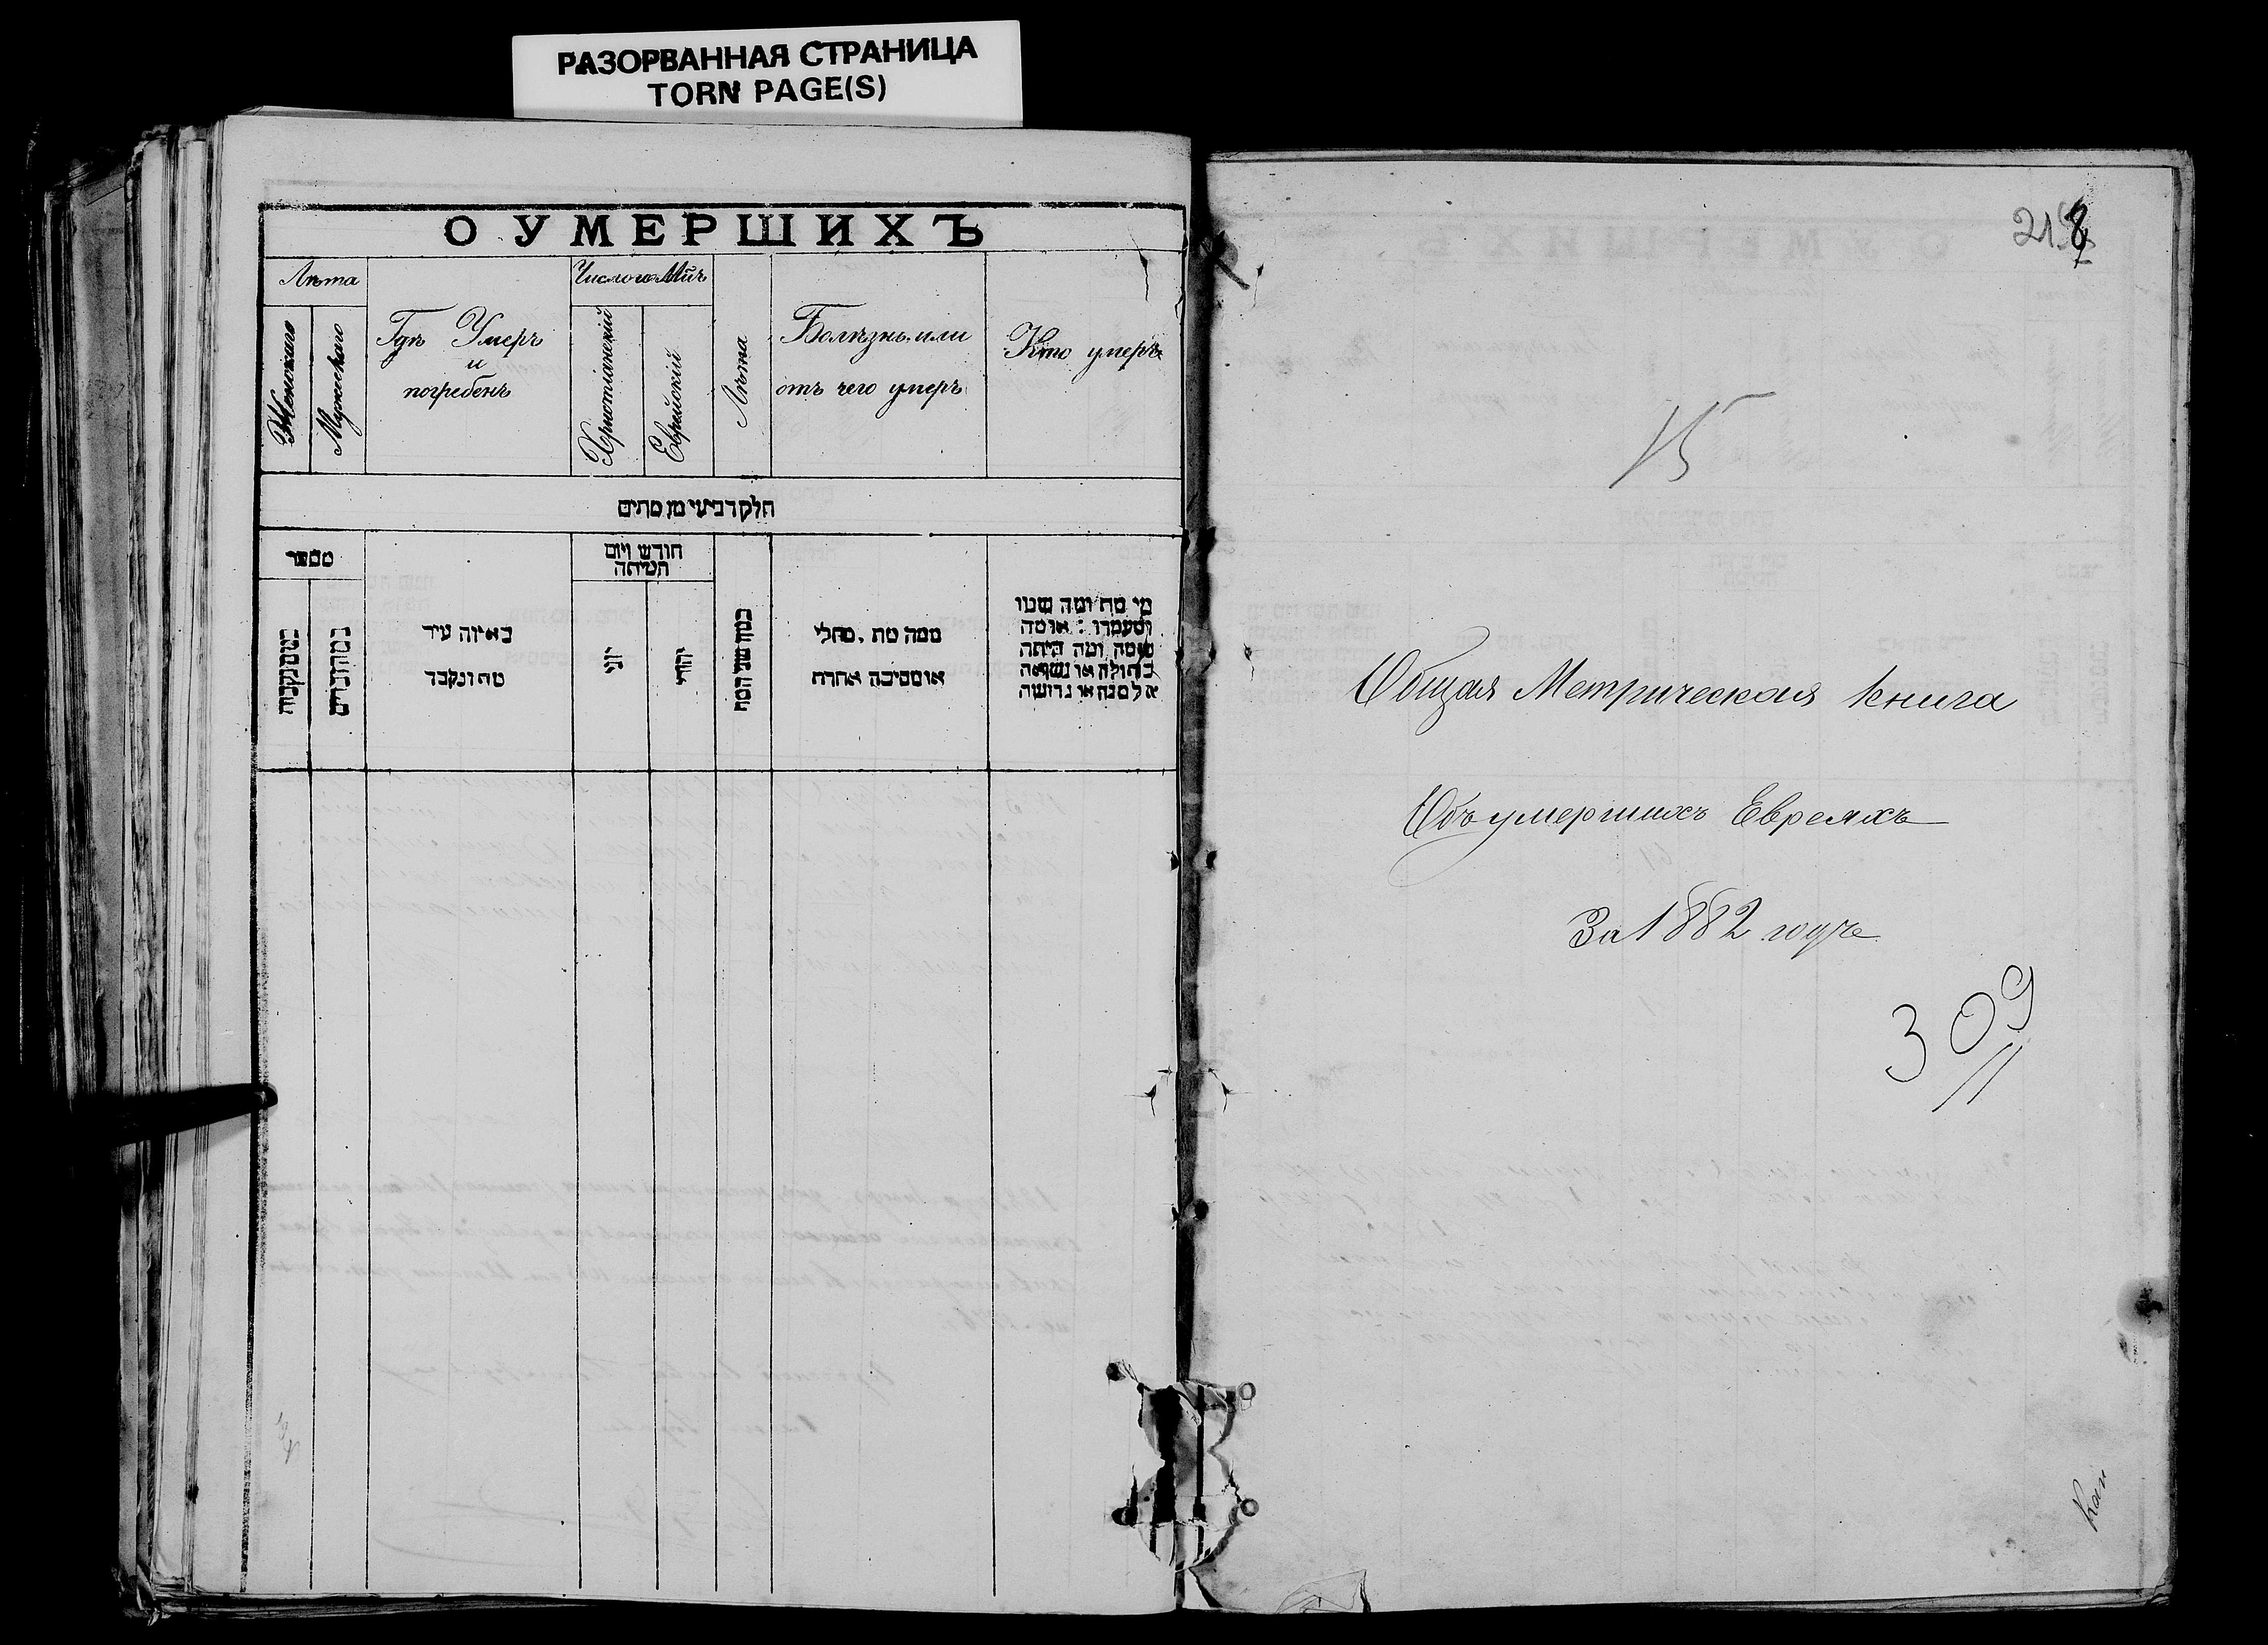 РАЗОРВАННАЯ СТРАНИЦА
TORN PAGE(S)
О УМЕРШИХЪ
Лѣта
Женскаго
Мужескаго
Гдѣ Умеръ
и
погребенъ
Число и Мѣц
Христіанскій
Еврейскій
Лѣта
Болѣзнь или
отъ чего умеръ
Кто умеръ
חלק רביעי מן מתים
מספר
ממין נקבות
ממין זכרים
באיזה עיר
מת ונקבר
חודש ויום
המיתה
יוני
יהודי
כמה שני המת
ממה מת, מחלי
או מסיבה אחרת
מי מת ומה שמו
ומעמדו : או מה
שמה ומה היתה
בתולה או נשואה
אלמנה או גרושה
218
15
Общая Метрическая книга
Объ умершихъ Евреяхъ
За 1882 годъ
309